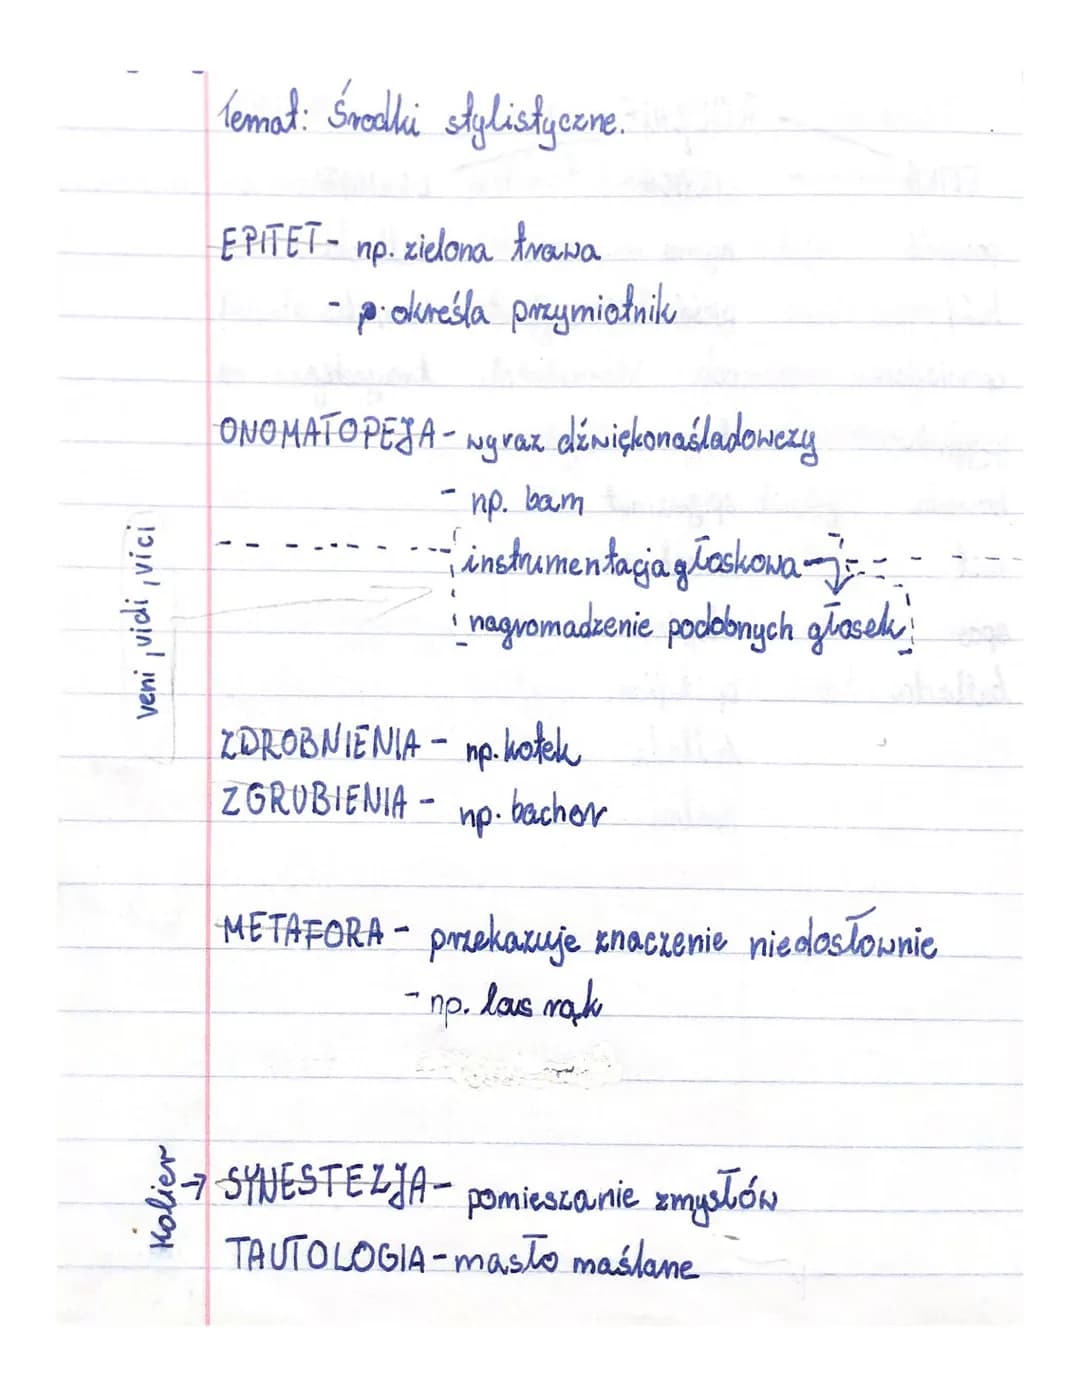 Temat: Środki stylistyczne.
EPITET - np. zielona trawa
- p. określa przymiotnik
ONOMATOPEJA - wyraz dźwiękonaśladowczy
- np. bam
instrumentacja głoskowa →
nagromadzenie podobnych głosek
veni, vidi, vici
ZDROBNIENIA - np. kotek
ZGRUBIENIA - np. bachor
METAFORA - przekazuje znaczenie niedosłownie
- np. las rąk
Kolier → SYNESTEZJA - pomieszanie zmysłów
TAUTOLOGIA - masło maślane